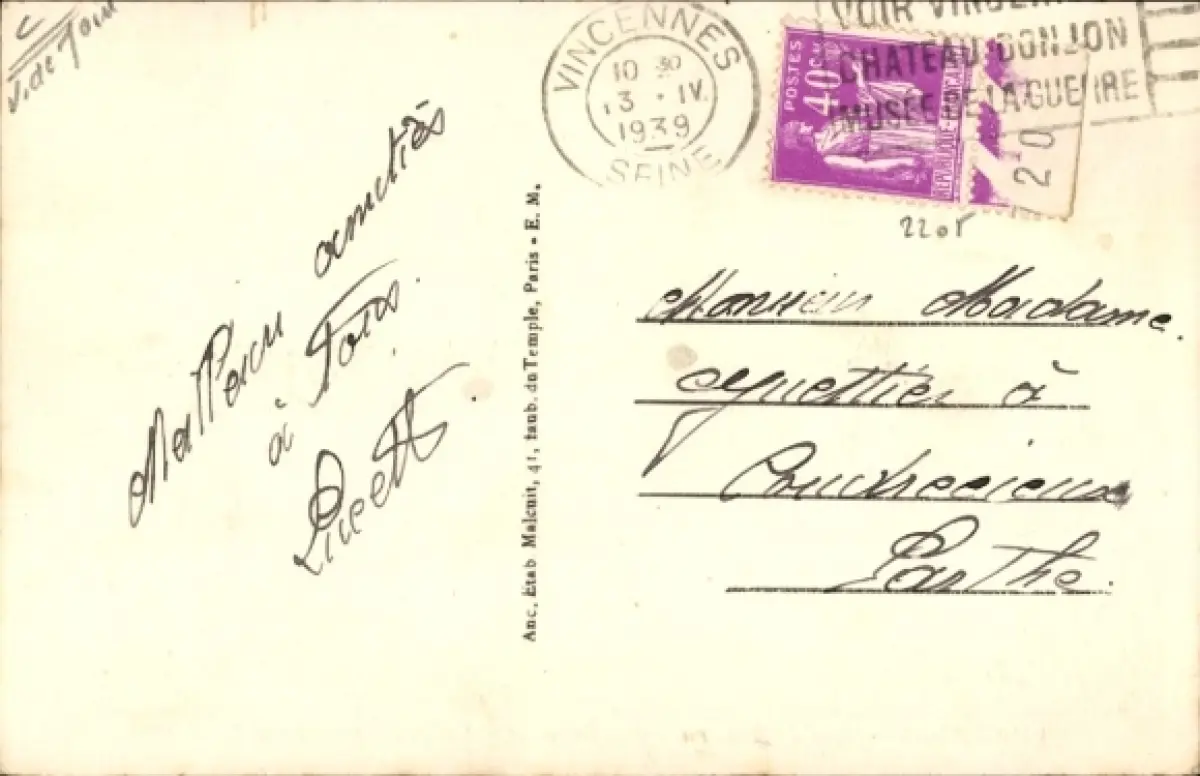 V. de
VINCENNES
10 30
13 · IV.
1939
SEINE
POSTES
40 c
REPUBLIQUE-FRANÇAISE
VOIR VINCEN
CHATEAU DONJON
MUSÉE DE LA GUERRE
20
2205
amitiés
à Tous.
Lucette.
Anc. Étab Malcuit, 41, faub. du Temple, Paris - E. M.
Monsieur Madame.
à
Coudrecieux
Sarthe.